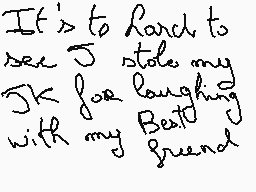 It's to hard to
see I stole my
JK for laughing
with my Best
friend